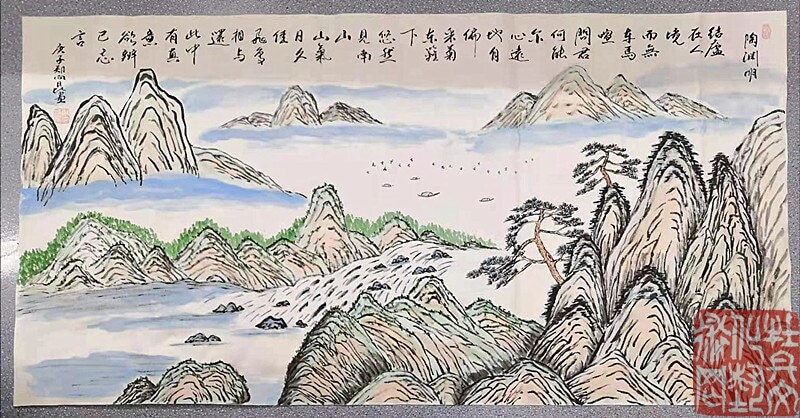 陶渊明
结廬
在人
境
而無
车馬
喧
問君
何能
尔
心遠
地自
偏
采菊
东篱
下
悠然
見南
山
山氣
日夕
佳
飛鳥
相与
還
此中
有真
意
欲辨
已忘
言
庚子